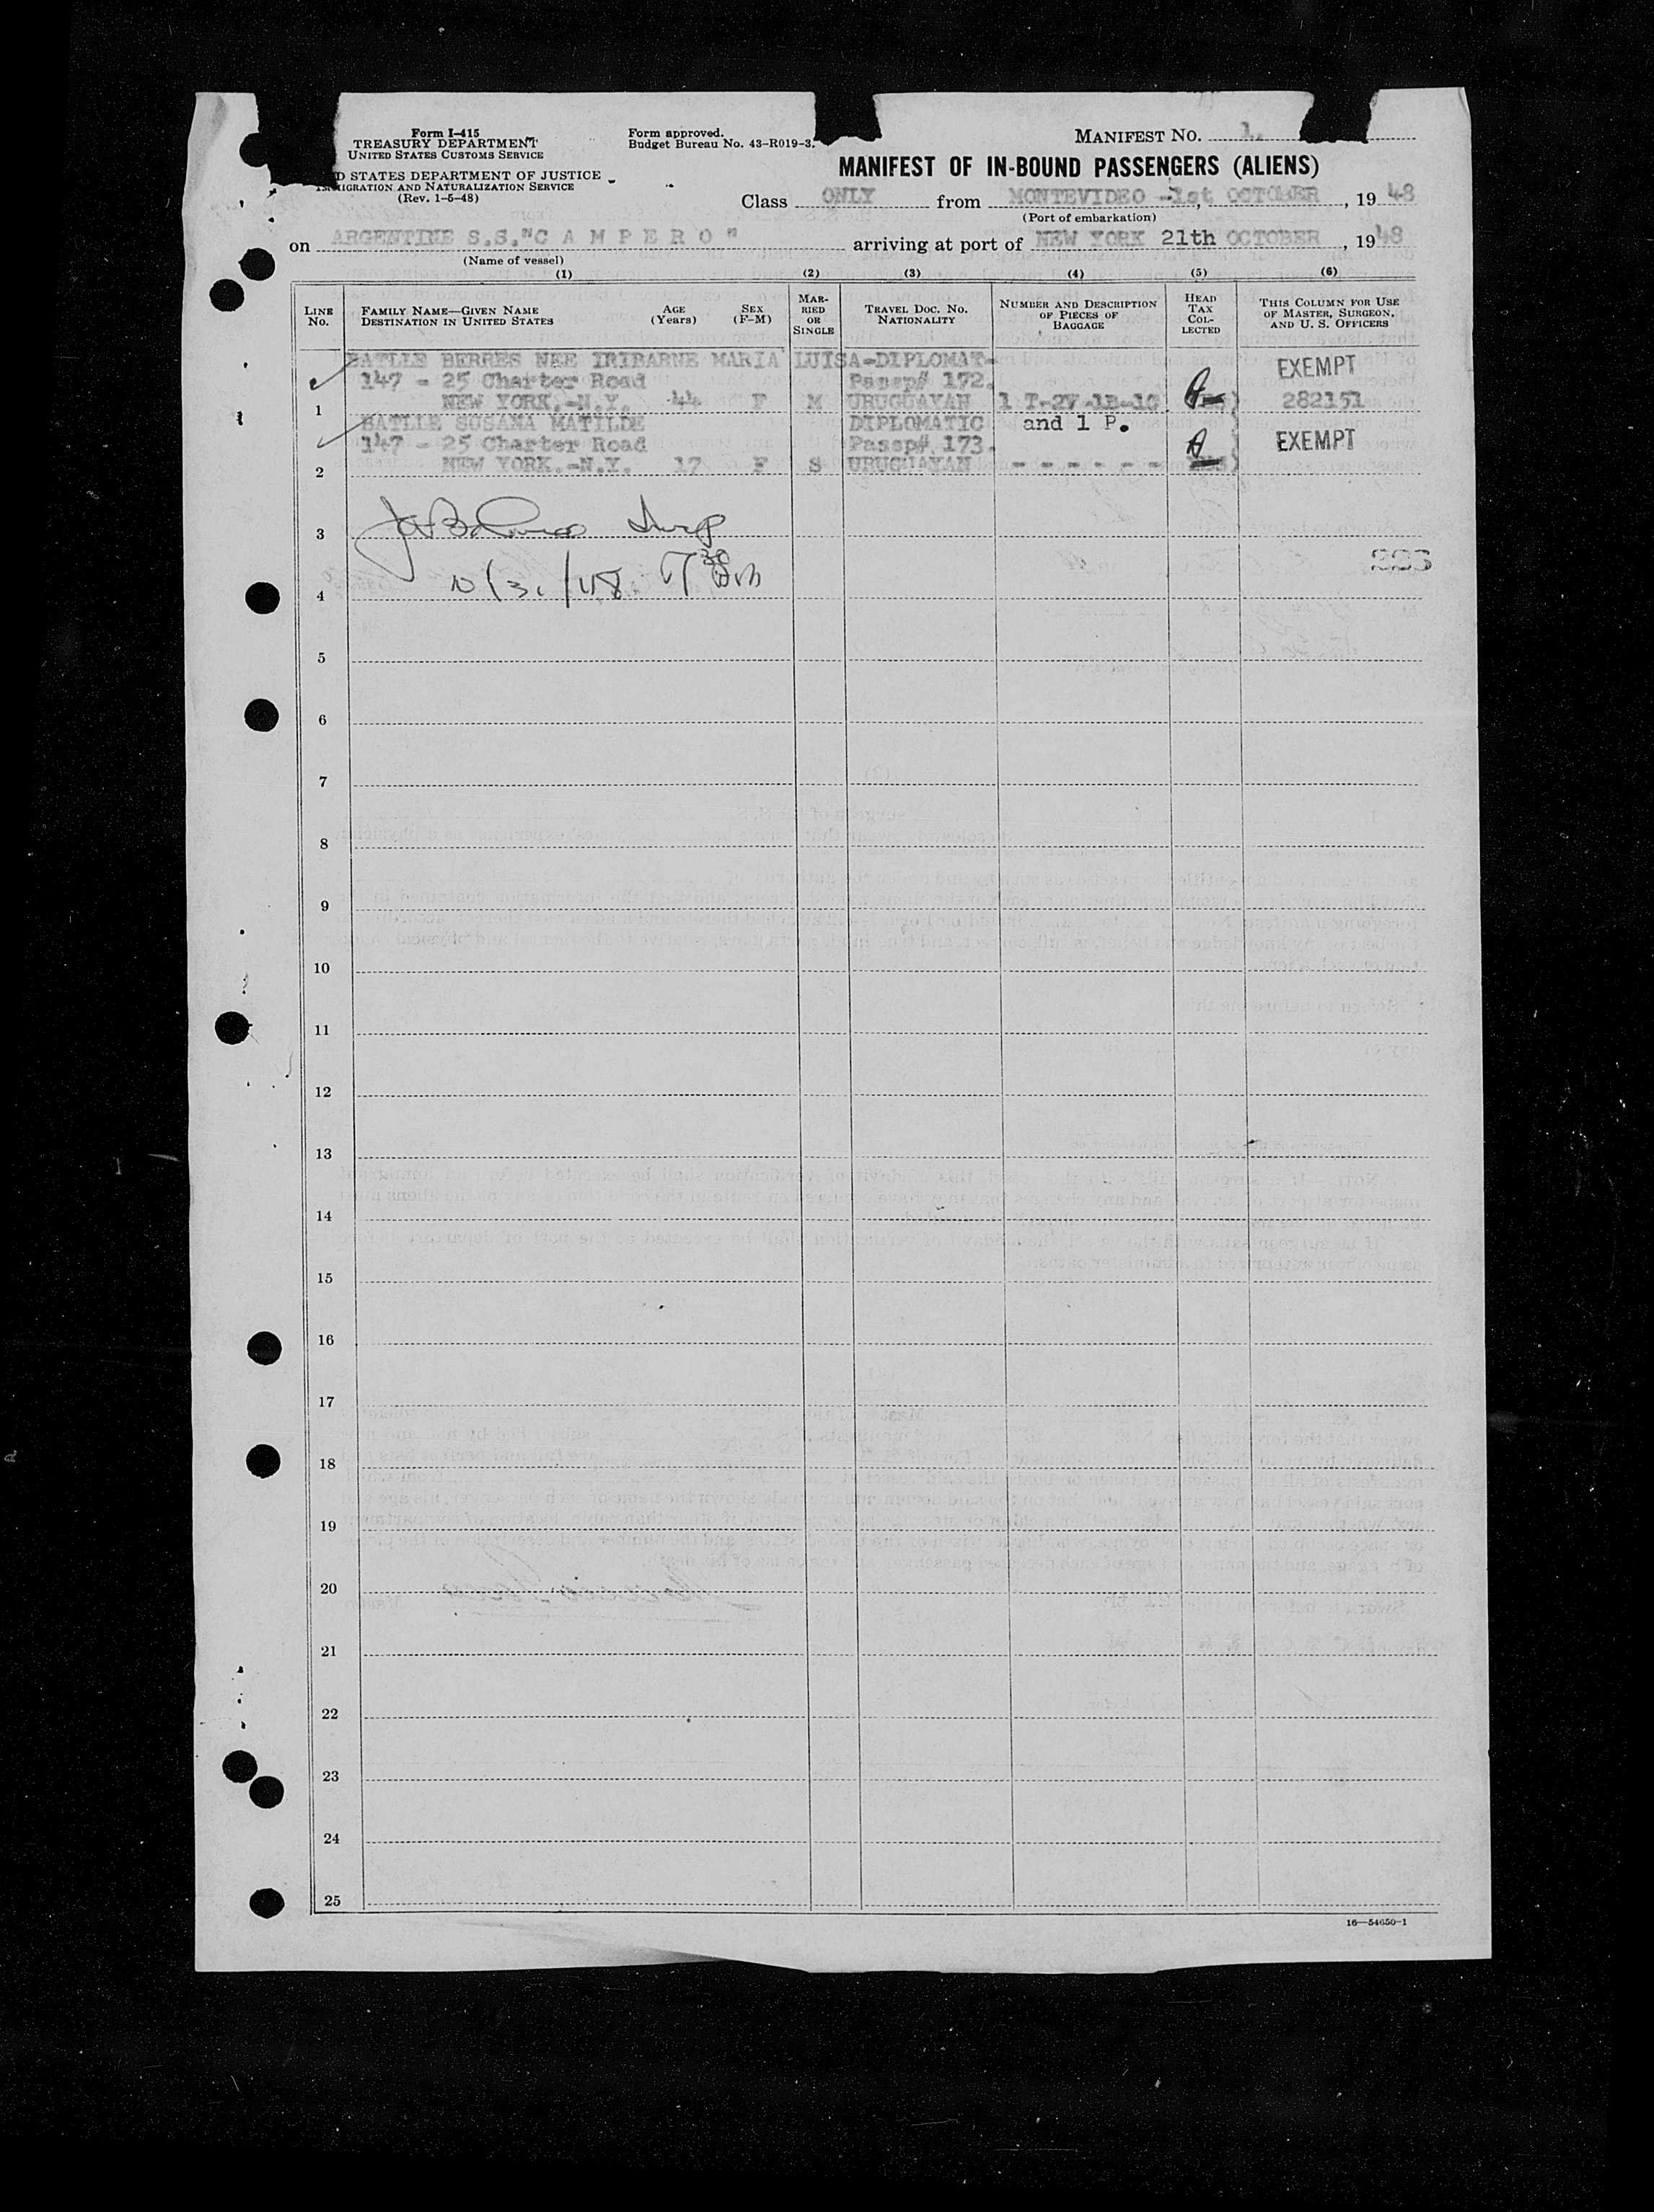 Form I-415
TREASURY DEPARTMENT
UNITED STATES CUSTOMS SERVICE
D STATES DEPARTMENT OF JUSTICE
IMMIGRATION AND NATURALIZATION SERVICE
(Rev. 1-5-48)
Form approved.
Budget Bureau No. 43-R019-3.
MANIFEST NO. 1.
MANIFEST OF IN-BOUND PASSENGERS (ALIENS)
Class ONLY from MONTEVIDEO -1st, OCTOBER, 19 48
(Port of embarkation)
on ARGENTINE S.S."C A M P E R O" arriving at port of NEW YORK 21th OCTOBER, 1948
(Name of vessel)
(1) (2) (3) (4) (5) (6)
LINE No.
FAMILY NAME—GIVEN NAME
DESTINATION IN UNITED STATES
AGE (Years)
SEX (F-M)
MARRIED OR SINGLE
TRAVEL DOC. NO. NATIONALITY
NUMBER AND DESCRIPTION OF PIECES OF BAGGAGE
HEAD TAX COLLECTED
THIS COLUMN FOR USE OF MASTER, SURGEON, AND U. S. OFFICERS
BATLLE BERRES NEE IRIBARNE MARIA LUISA-DIPLOMAT-
147 - 25 Charter Road Passp# 172. EXEMPT
1 NEW YORK.-N.Y. 44 F M URUGUAYAN 1 T-2V-1B-1G 282151
BATLLE SUSANA MATILDE DIPLOMATIC and 1 P.
147 - 25 Charter Road Passp# 173. EXEMPT
2 NEW YORK.-N.Y. 17 F S URUGUAYAN - - - - - -
3
4
5
6
7
8
9
10
11
12
13
14
15
16
17
18
19
20
21
22
23
24
25
16—54650-1